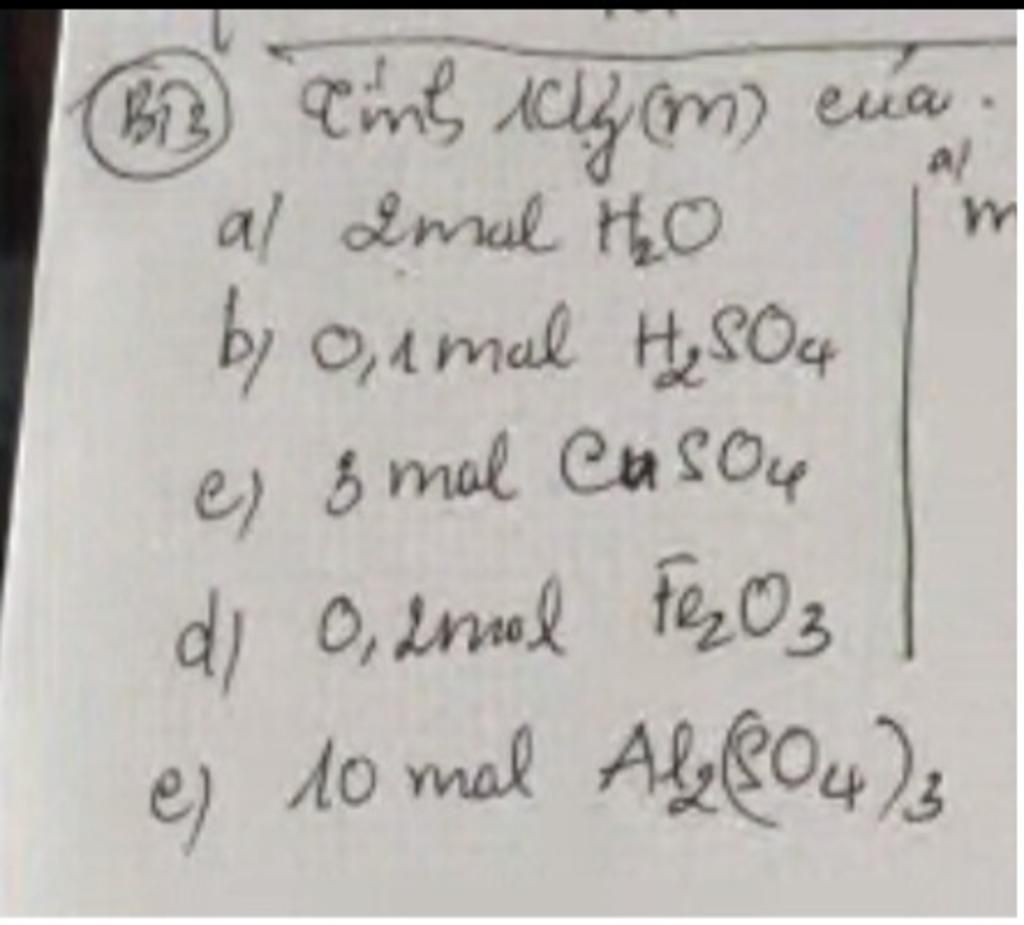 BT3 Tính Klg (m) của.
a/ 2 mol H₂O
b) 0,1 mol H₂SO₄
c) 3 mol CuSO₄
d) 0,2 mol Fe₂O₃
e) 10 mol Al₂(SO₄)₃
a/
m